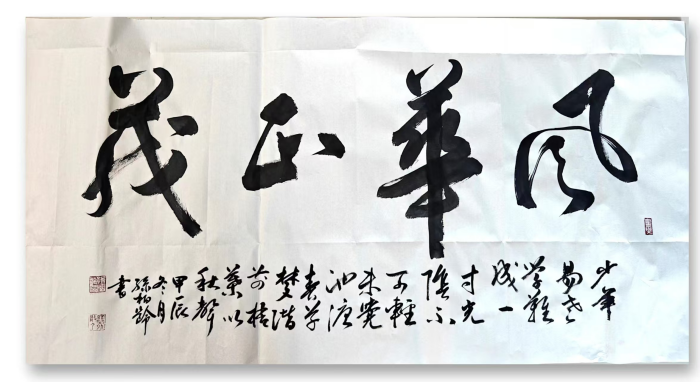 风華正茂
少年
易老
学難
成一
寸光
陰不
可輕
未覺
池塘
春草
梦階
前梧
葉以
秋聲
甲辰
冬月
孫柏齡
書